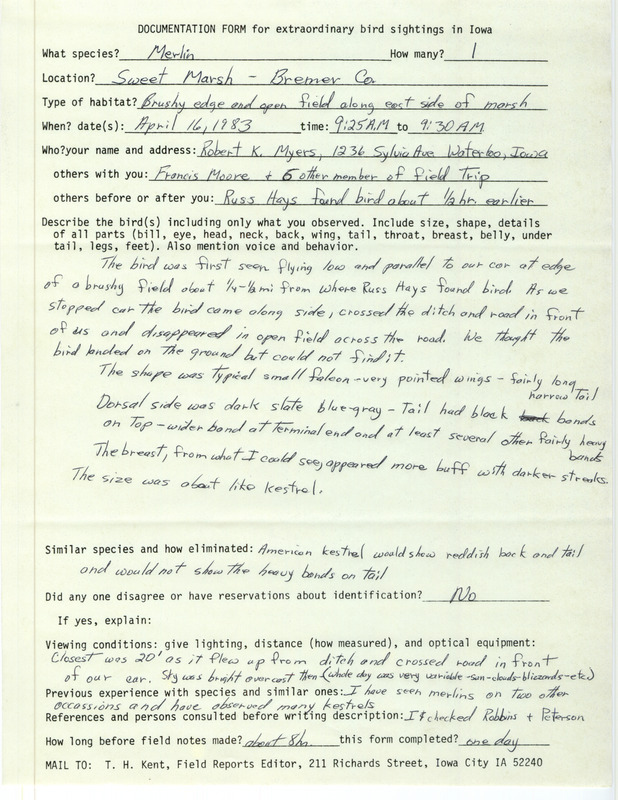 DOCUMENTATION FORM for extraordinary bird sightings in Iowa
What species? Merlin How many? 1
Location? Sweet Marsh - Bremer Co
Type of habitat? Brushy edge and open field along east side of marsh
When? date(s): April 16, 1983 time: 9:25 A.M to 9:30 A.M
Who? your name and address: Robert K. Myers, 1236 Sylvia Ave Waterloo, Iowa
others with you: Francis Moore + 6 other member of field Trip
others before or after you: Russ Hays found bird about 1/2 hr. earlier
Describe the bird(s) including only what you observed. Include size, shape, details
of all parts (bill, eye, head, neck, back, wing, tail, throat, breast, belly, under
tail, legs, feet). Also mention voice and behavior.
The bird was first seen flying low and parallel to our car at edge
of a brushy field about 1/4-1/2 mi from where Russ Hays found bird. As we
stopped car the bird came along side, crossed the ditch and road in front
of us and disappeared in open field across the road. We thought the
bird landed on the ground but could not find it.
The shape was typical small falcon - very pointed wings - fairly long
narrow Tail
Dorsal side was dark slate blue-gray - Tail had black back bands
on Top - wider band at terminal end and at least several other fairly heavy
bands
The breast, from what I could see, appeared more buff with darker streaks.
The size was about like kestrel.
Similar species and how eliminated: American kestrel would show reddish back and tail
and would not show the heavy bands on tail
Did any one disagree or have reservations about identification? No
If yes, explain:
Viewing conditions: give lighting, distance (how measured), and optical equipment:
Closest was 20' as it flew up from ditch and crossed road in front
of our car. Sky was bright overcast then (whole day was very variable - sun - clouds - blizzards - etc)
Previous experience with species and similar ones: I have seen merlins on two other
occassions and have observed many kestrels
References and persons consulted before writing description: I checked Robbins + Peterson
How long before field notes made? about 8 hr. this form completed? one day
MAIL TO: T. H. Kent, Field Reports Editor, 211 Richards Street, Iowa City IA 52240